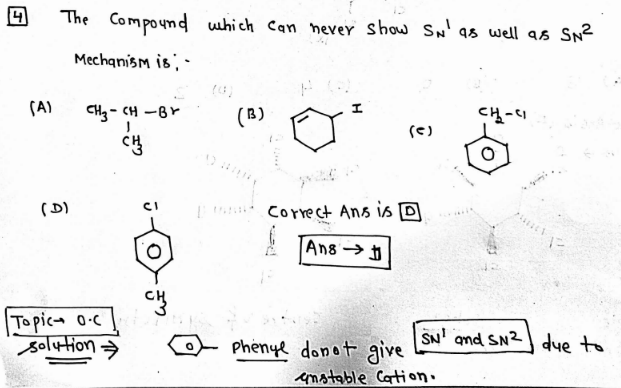 4 The Compound which can never show SN1 as well as SN2
Mechanism is;-
(A) CH3-CH-Br
CH3
(B) I
(C) CH2-Cl
(D) Cl
CH3
Correct Ans is D
Ans → D
Topic→ O.C
Solution ⇒ Phenyl donot give SN1 and SN2 due to
unstable Cation.